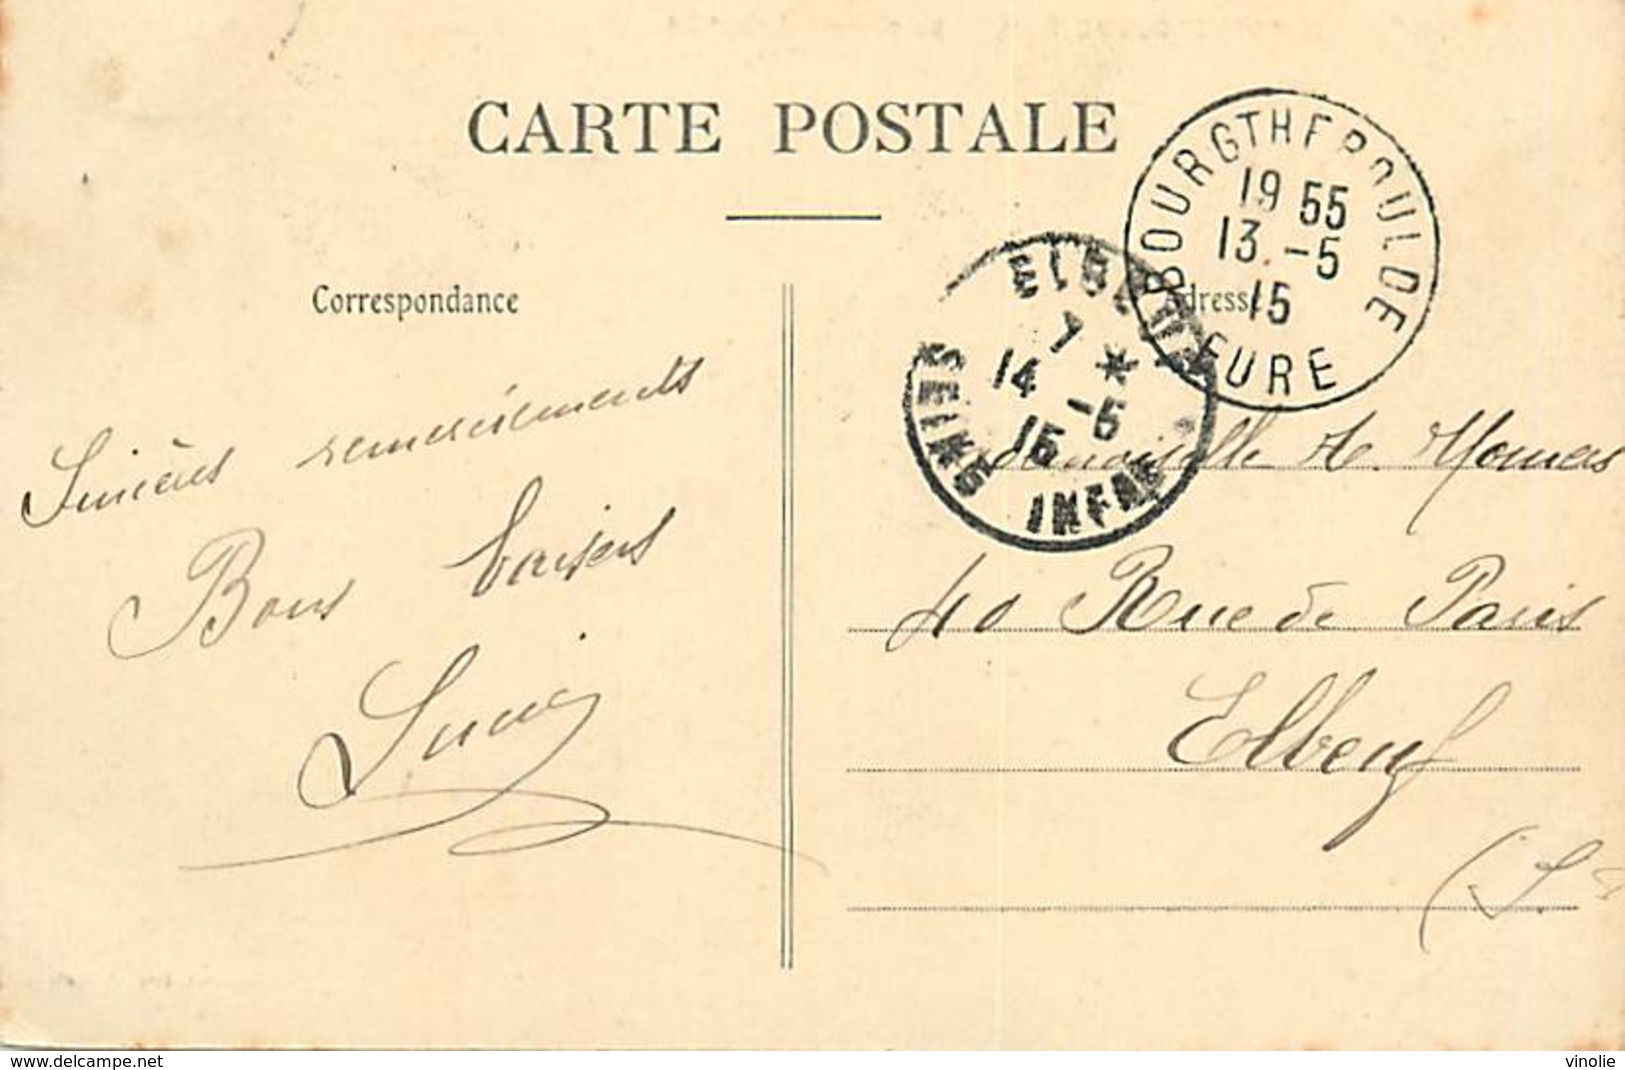 CARTE POSTALE
Correspondance
Adresse
BOURGTHEROULDE
19 55
13 -5
15
EURE
ELBEUF
14 -5
15
SEINE INFRE
Sincères remerciements
Bons baisers
Lucie
Mademoiselle
40 Rue de Paris
Elbeuf
www.delcampe.net
vinolie